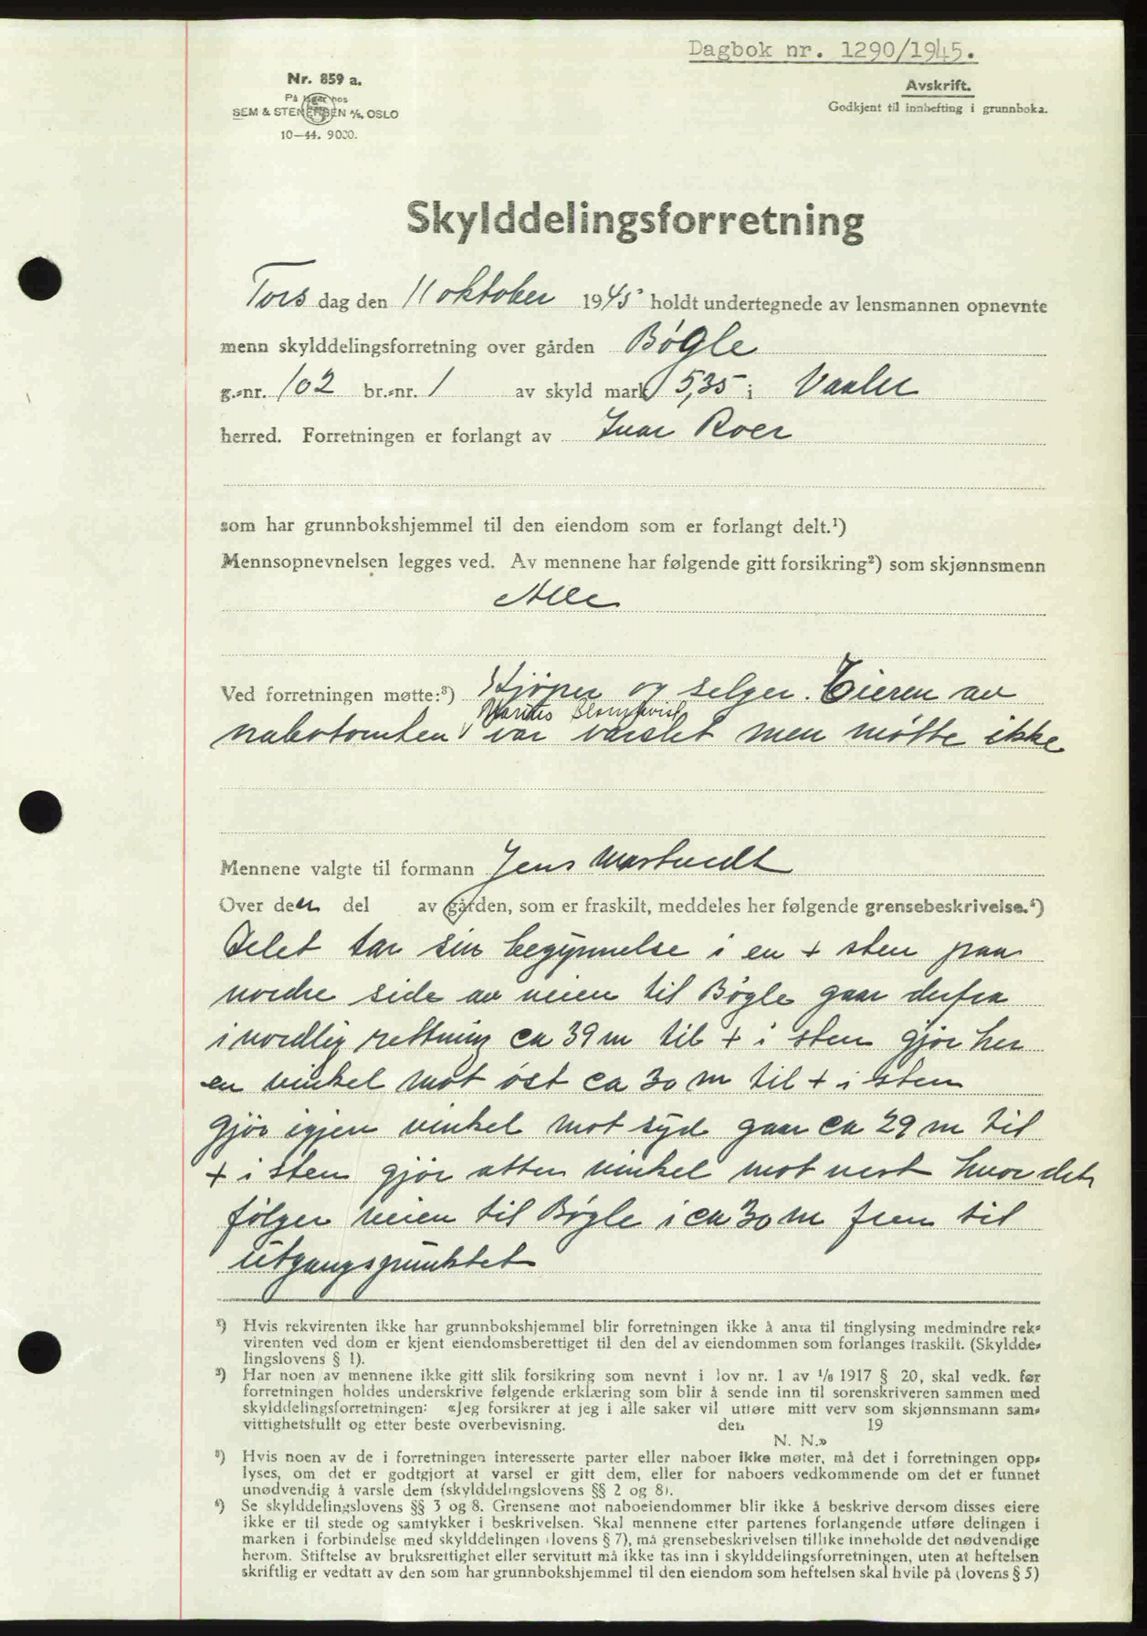 Dagbok nr. 1290/1945.
Avskrift.
Godkjent til innhefting i grunnboka.
Nr. 859 a.
På lager hos
SEM & STENERSEN A/S, OSLO
10-44. 9000.
Skylddelingsforretning
Tors dag den 11 oktober 1945 holdt undertegnede av lensmannen opnevnte
menn skylddelingsforretning over gården Bøgle
g.-nr. 102 br.-nr. 1 av skyld mark 5,35 i Vaaler
herred. Forretningen er forlangt av Ivar Roer
som har grunnbokshjemmel til den eiendom som er forlangt delt.¹)
Mennsopnevnelsen legges ved. Av mennene har følgende gitt forsikring²) som skjønnsmenn
Alle
Ved forretningen møtte:³) Kjøper og selger. Eieren av
Marius Blomqvist
nabotomten var varslet men møtte ikke
Mennene valgte til formann Jens
Over den del av gården, som er fraskilt, meddeles her følgende grensebeskrivelse.⁴)
Delet tar sin begynnelse i en + sten paa
nordre side av veien til Bøgle gaar derfra
i nordlig rettning ca 39 m til + i sten gjør her
en vinkel mot øst ca 30 m til + i sten
gjør igjen vinkel mot syd gaar ca 29 m til
+ i sten gjør atter vinkel mot vest hvor det
følger veien til Bøgle i ca 30 m frem til
utgangspunktet
¹) Hvis rekvirenten ikke har grunnbokshjemmel blir forretningen ikke å anta til tinglysing medmindre rek-
virenten ved dom er kjent eiendomsberettiget til den del av eiendommen som forlanges fraskilt. (Skyldde-
lingslovens § 1).
²) Har noen av mennene ikke gitt slik forsikring som nevnt i lov nr. 1 av 1/6 1917 § 20, skal vedk. før
forretningen holdes underskrive følgende erklæring som blir å sende inn til sorenskriveren sammen med
skylddelingsforretningen: «Jeg forsikrer at jeg i alle saker vil utføre mitt verv som skjønnsmann sam-
vittighetsfullt og etter beste overbevisning. den 19
N. N.»
³) Hvis noen av de i forretningen interesserte parter eller naboer ikke møter, må det i forretningen opp-
lyses, om det er godtgjort at varsel er gitt dem, eller for naboers vedkommende om det er funnet
unødvendig å varsle dem (skylddelingslovens §§ 2 og 8).
⁴) Se skylddelingslovens §§ 3 og 8. Grensene mot naboeiendommer blir ikke å beskrive dersom disses eiere
ikke er til stede og samtykker i beskrivelsen. Skal mennene etter partenes forlangende utføre delingen i
marken i forbindelse med skylddelingen (lovens § 7), må grensebeskrivelsen tillike inneholde det nødvendige
herom. Stiftelse av bruksrettighet eller servitutt må ikke tas inn i skylddelingsforretningen, uten at heftelsen
skriftlig er vedtatt av den som har grunnbokshjemmel til den eiendom som heftelsen skal hvile på (lovens § 5)